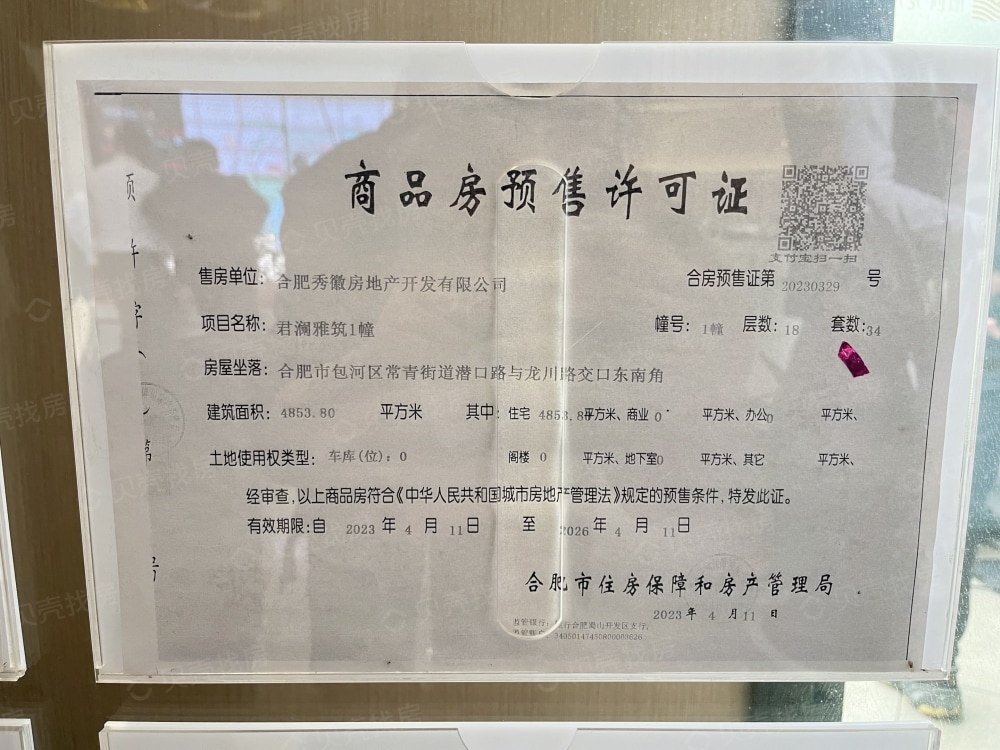 商品房预售许可证
支付宝扫一扫
售房单位：合肥秀徽房地产开发有限公司 合房预售证第 20230329 号
项目名称：君澜雅筑1幢 幢号：1幢 层数：18 套数：34
房屋坐落：合肥市包河区常青街道潜口路与龙川路交口东南角
建筑面积：4853.80 平方米 其中：住宅 4853.8平方米、商业 0 平方米、办公0 平方米、
土地使用权类型：车库(位)：0 阁楼 0 平方米、地下室0 平方米、其它 平方米、
经审查，以上商品房符合《中华人民共和国城市房地产管理法》规定的预售条件，特发此证。
有效期限：自 2023 年 4 月 11日 至 2026 年 4 月 11日
合肥市住房保障和房产管理局
2023 年 4 月 11 日
监管银行：行合肥蜀山开发区支行；
监管账户：34050147450800009626
第
号
贝壳找房